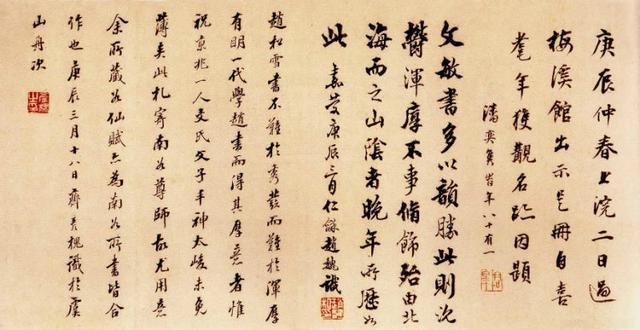 庚辰仲春上浣二日過
梅溪館出示是冊自喜
耄年獲觀名跡因題
潘奕雋時年八十有一
文敏書多以韻勝此則沈
鬱渾厚不事脩飾殆由北
海而之山陰者晚年所歷如
此 嘉慶庚辰三月仁龢趙魏識
趙松雪書不難於秀發而難於渾厚
有明一代學趙書而得其厚意者惟
祝京兆一人文氏父子丰神太峻未免
薄矣此札寄南谷尊師故尤用意
余所藏仙賦亦為南谷所書皆合
作也庚辰三月十八日齊彥槐識於虞
山舟次